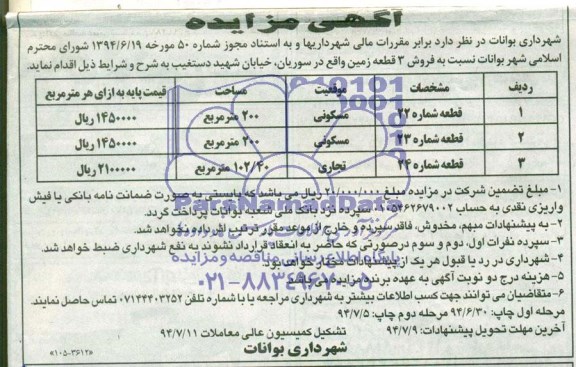 آگهی مزایده
شهرداری بوانات در نظر دارد برابر مقررات مالی شهرداریها و به استناد مجوز شماره ۵۰ مورخه ۱۳۹۴/۶/۱۹ شورای محترم
اسلامی شهر بوانات نسبت به فروش ۳ قطعه زمین واقع در سوریان، خیابان شهید دستغیب به شرح و شرایط ذیل اقدام نماید.
ردیف مشخصات موقعیت مساحت قیمت پایه به ازای هر مترمربع
۱ قطعه شماره ۲۲ مسکونی ۲۰۰ مترمربع ۱۴۵۰۰۰۰ ریال
۲ قطعه شماره ۲۳ مسکونی ۲۰۰ مترمربع ۱۴۵۰۰۰۰ ریال
۳ قطعه شماره ۲۴ تجاری ۱۰۲/۴۰ مترمربع ۲۱۰۰۰۰۰ ریال
۱- مبلغ تضمین شرکت در مزایده مبلغ ۲۰/۰۰۰/۰۰۰ ریال می باشد که بایستی به صورت ضمانت نامه بانکی یا فیش
واریزی نقدی به حساب سپرده نزد بانک ملی شعبه بوانات پرداخت گردد.
۲- به پیشنهادات مبهم، مخدوش، فاقد سپرده و خارج از موعد مقرر ترتیب اثر داده نخواهد شد.
۳- سپرده نفرات اول، دوم و سوم درصورتی که حاضر به انعقاد قرارداد نشوند به نفع شهرداری ضبط خواهد شد.
۴- شهرداری در رد یا قبول هر یک از پیشنهادات مختار خواهد بود.
۵- هزینه درج دو نوبت آگهی به عهده برنده مزایده می باشد.
۶- متقاضیان می توانند جهت کسب اطلاعات بیشتر به شهرداری مراجعه یا با شماره تلفن ۰۷۱۴۴۴۰۳۲۵۲ تماس حاصل نمایند.
مرحله اول چاپ: ۹۴/۶/۳۰ مرحله دوم چاپ: ۹۴/۷/۵
آخرین مهلت تحویل پیشنهادات: ۹۴/۷/۹ تشکیل کمیسیون عالی معاملات ۹۴/۷/۱۱
شهرداری بوانات
«۱۰۵-۳۶۱۲»
ParsNamadData
پایگاه اطلاع رسانی مناقصه و مزایده
۰۲۱-۸۸۳۴۹۶۷۰-۵